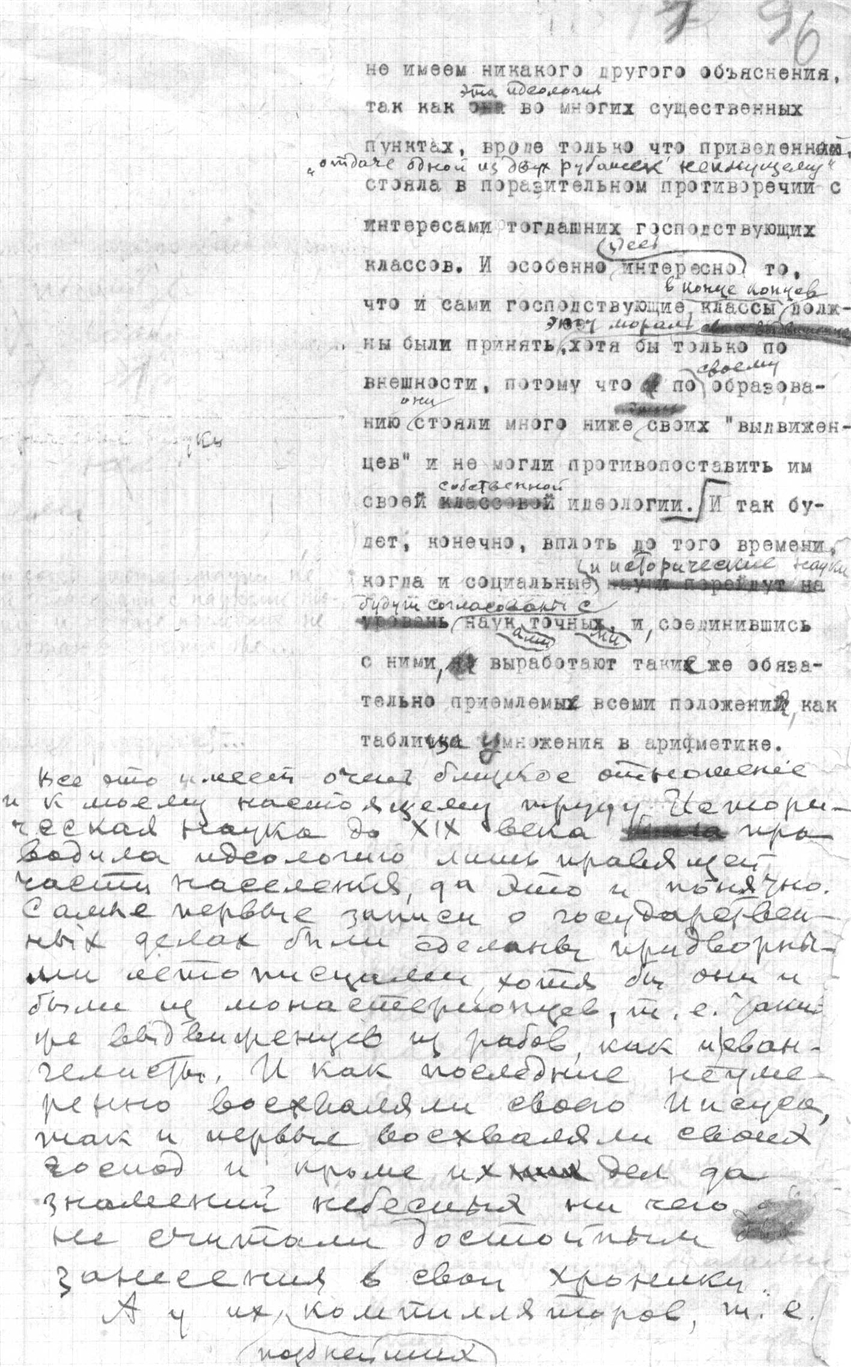 96
не имеем никакого другого объяснения,
эта идеология
так как она во многих существенных
пунктах, вроде только что приведенной,
„отдаче одной из двух рубашек неимущему“
стояла в поразительном противоречии с
интересами тогдашних господствующих
здесь
классов. И особенно интересно то,
в конце концов
что и сами господствующие классы долж-
эту мораль
ны были принять, хотя бы только по
своему
внешности, потому что по образова-
они
нию стояли много ниже своих "выдвижен-
цев" и не могли противопоставить им
собственной
своей классовой идеологии. И так бу-
дет, конечно, вплоть до того времени,
и исторические науки
когда и социальные науки перейдут на
будут согласованы с
уровень наук точных, и, соединившись
ами ми
с ними, выработают такие же обяза-
тельно приемлемые всеми положения, как
таблица умножения в арифметике.
Все это имеет очень близкое отношение
и к моему настоящему труду. Истори-
ческая наука до XIX века была про-
водила идеологию лишь правящей
части населения, да это и понятно.
Самые первые записи о государствен-
ных делах были сделаны придворны-
ми летописцами, хотя бы они и
были из монастерионцев, т. е. таких
же выдвиженцев из рабов, как и еван-
гелисты. И как последние неуме-
ренно восхваляли своего Иисуса,
так и первые восхваляли своих
господ и кроме их дел да
знамений небесных ни чего
не считали достойным
занесения в свои хроники.
А у их компилляторов, т. е.
позднейших